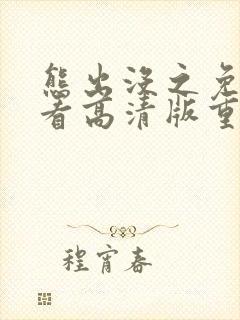 熊出没之免
看高清版重
程宵春